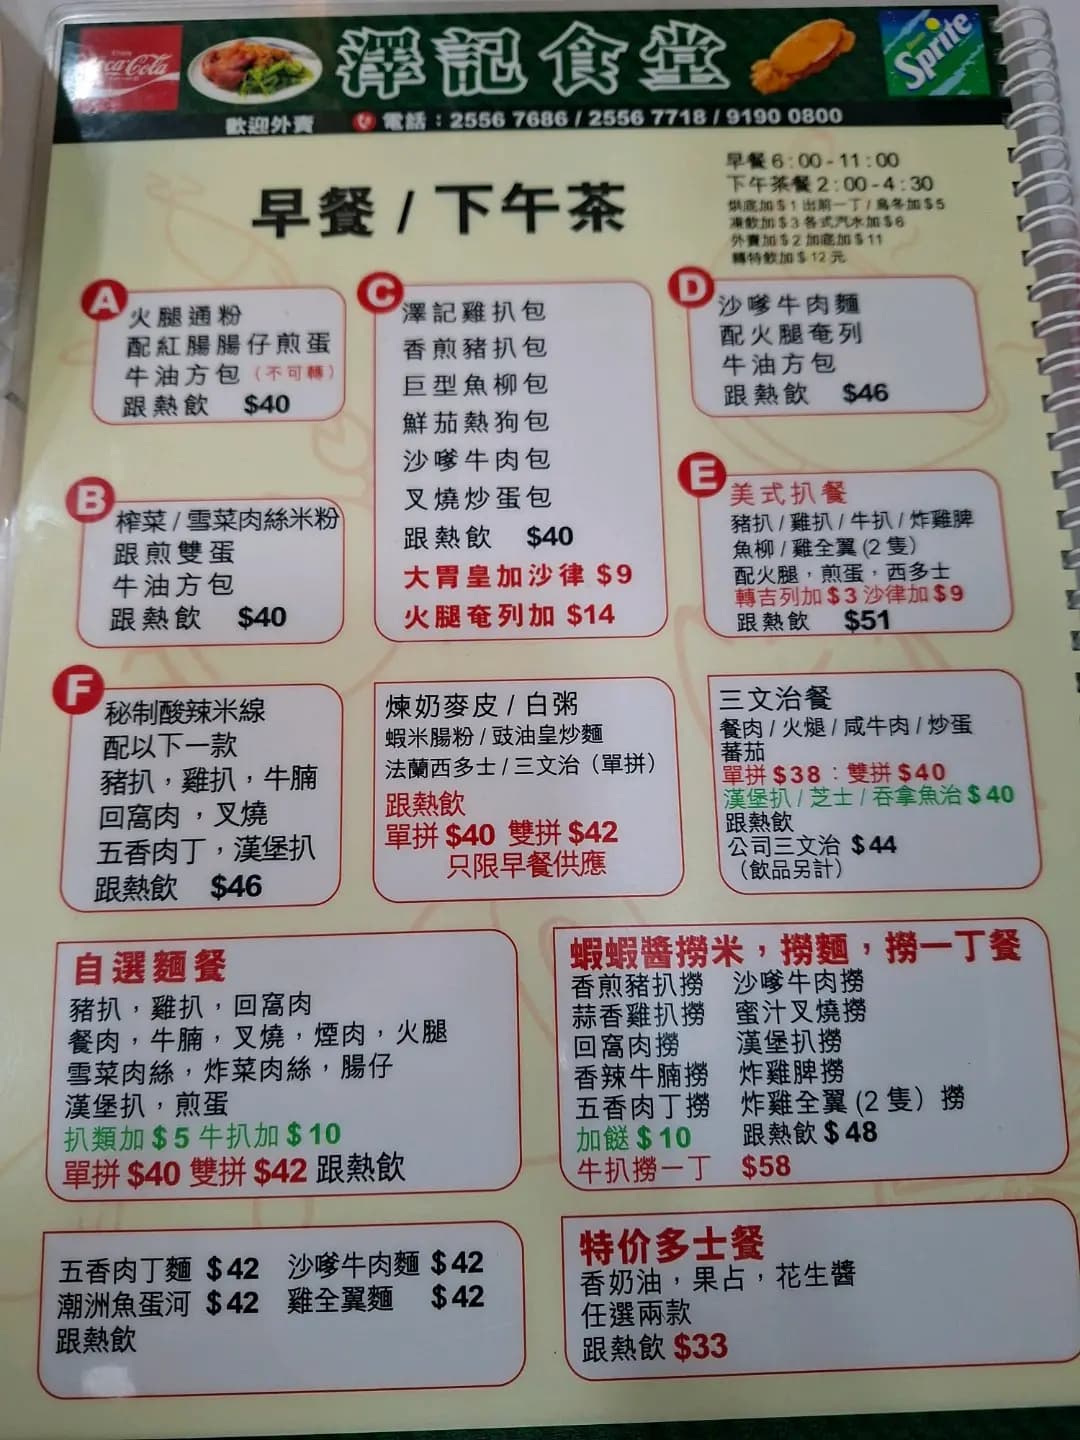 Coca-Cola
澤記食堂
Sprite
歡迎外賣 電話：2556 7686 / 2556 7718 / 9190 0800
早餐 / 下午茶
早餐 6：00 - 11：00
下午茶餐 2：00 - 4：30
烘底加 $ 1 出前一丁 / 烏冬加 $ 5
凍飲加 $ 3 各式汽水加 $ 6
外賣加 $ 2 加底加 $ 11
轉特飲加 $ 12 元
A
火腿通粉
配紅腸腸仔煎蛋
牛油方包（不可轉）
跟熱飲 $40
B
榨菜 / 雪菜肉絲米粉
跟煎雙蛋
牛油方包
跟熱飲 $40
C
澤記雞扒包
香煎豬扒包
巨型魚柳包
鮮茄熱狗包
沙嗲牛肉包
叉燒炒蛋包
跟熱飲 $40
大胃皇加沙律 $9
火腿奄列加 $14
D
沙嗲牛肉麵
配火腿奄列
牛油方包
跟熱飲 $46
E
美式扒餐
豬扒 / 雞扒 / 牛扒 / 炸雞脾
魚柳 / 雞全翼 (2 隻）
配火腿，煎蛋，西多士
轉吉列加 $ 3 沙律加 $ 9
跟熱飲 $51
F
秘制酸辣米線
配以下一款
豬扒，雞扒，牛腩
回窩肉，叉燒
五香肉丁，漢堡扒
跟熱飲 $46
煉奶麥皮 / 白粥
蝦米腸粉 / 豉油皇炒麵
法蘭西多士 / 三文治（單拼）
跟熱飲
單拼 $40 雙拼 $42
只限早餐供應
三文治餐
餐肉 / 火腿 / 咸牛肉 / 炒蛋
蕃茄
單拼 $ 38：雙拼 $ 40
漢堡扒 / 芝士 / 吞拿魚治 $ 40
跟熱飲
公司三文治 $ 44
（飲品另計）
自選麵餐
豬扒，雞扒，回窩肉
餐肉，牛腩，叉燒，煙肉，火腿
雪菜肉絲，炸菜肉絲，腸仔
漢堡扒，煎蛋
扒類加 $ 5 牛扒加 $ 10
單拼 $40 雙拼 $42 跟熱飲
蝦蝦醬撈米，撈麵，撈一丁餐
香煎豬扒撈 沙嗲牛肉撈
蒜香雞扒撈 蜜汁叉燒撈
回窩肉撈 漢堡扒撈
香辣牛腩撈 炸雞脾撈
五香肉丁撈 炸雞全翼 (2 隻）撈
加餸 $ 10 跟熱飲 $ 48
牛扒撈一丁 $58
五香肉丁麵 $ 42 沙嗲牛肉麵 $ 42
潮洲魚蛋河 $ 42 雞全翼麵 $ 42
跟熱飲
特价多士餐
香奶油，果占，花生醬
任選兩款
跟熱飲 $33